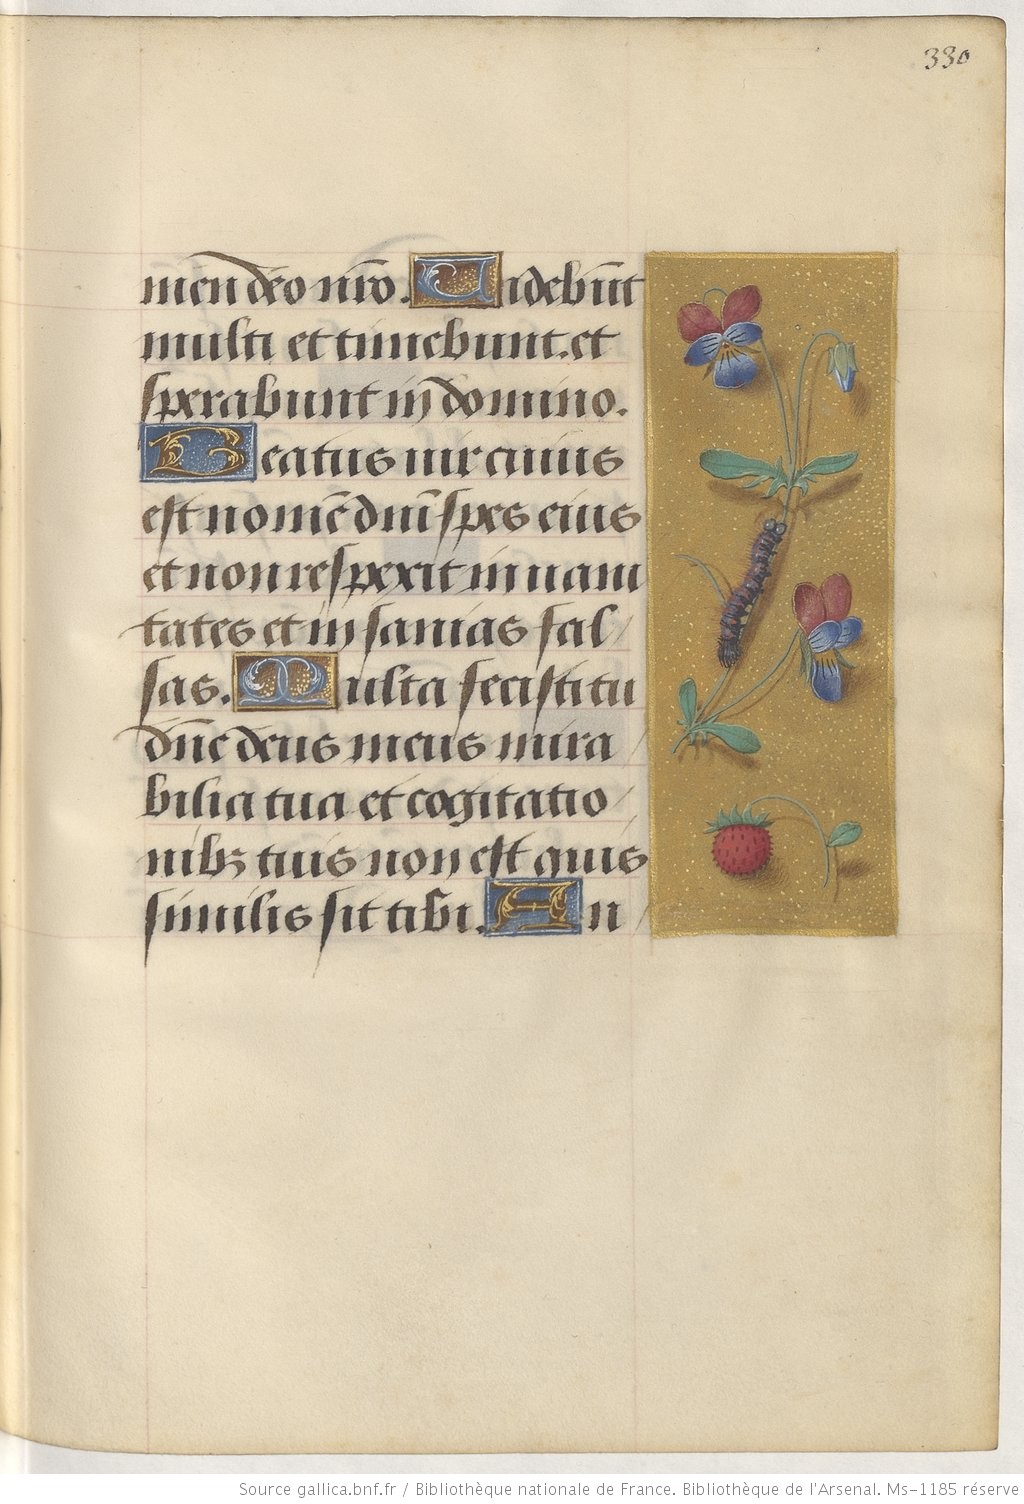 330
men dẽo nr̃o. Uidebũt
multi et timebunt. et
sperabunt in domino.
Beatus uir cuius
est nomẽ dñi spes eius
et non respexit in uani
tates et insanias fal
sas. Multa fecisti tu
dñe deus meus mira
bilia tua et cogitatio
nibꝫ tuis non est quis
similis sit tibi. An
Source gallica.bnf.fr / Bibliothèque nationale de France. Bibliothèque de l'Arsenal. Ms-1185 réserve